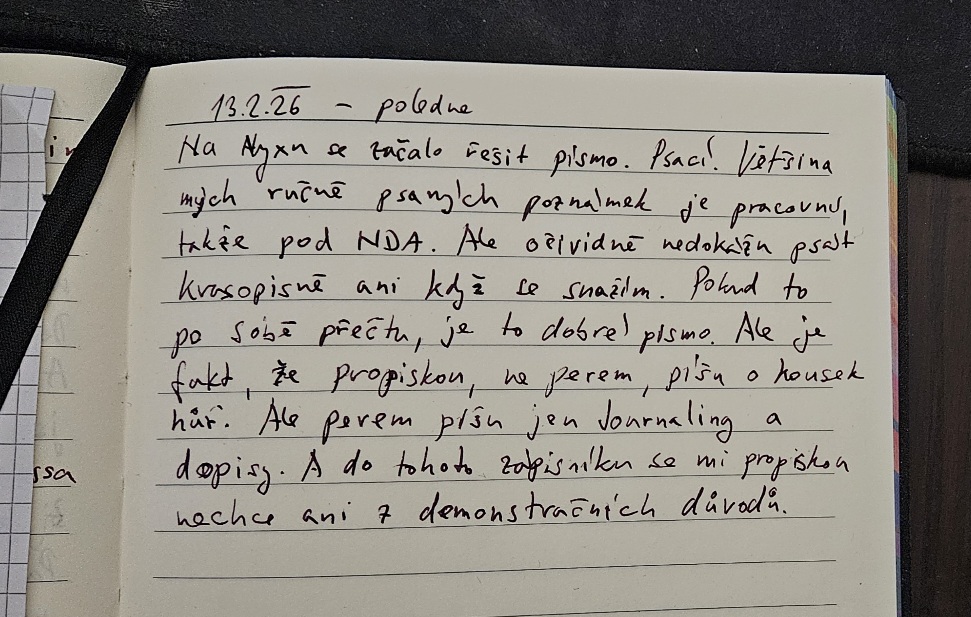 13.2.26 - poledne
Na Nyxu se začalo řešit písmo. Psací. Většina
mých ručně psaných poznámek je pracovní,
takže pod NDA. Ale očividně nedokážu psát
krasopisně ani když se snažím. Pokud to
po sobě přečtu, je to dobré písmo. Ale je
fakt, že propiskou, ne perem, píšu o kousek
hůř. Ale perem píšu jen Journaling a
dopisy. A do tohoto zápisníku se mi propiskou
nechce ani z demonstračních důvodů.
ssa